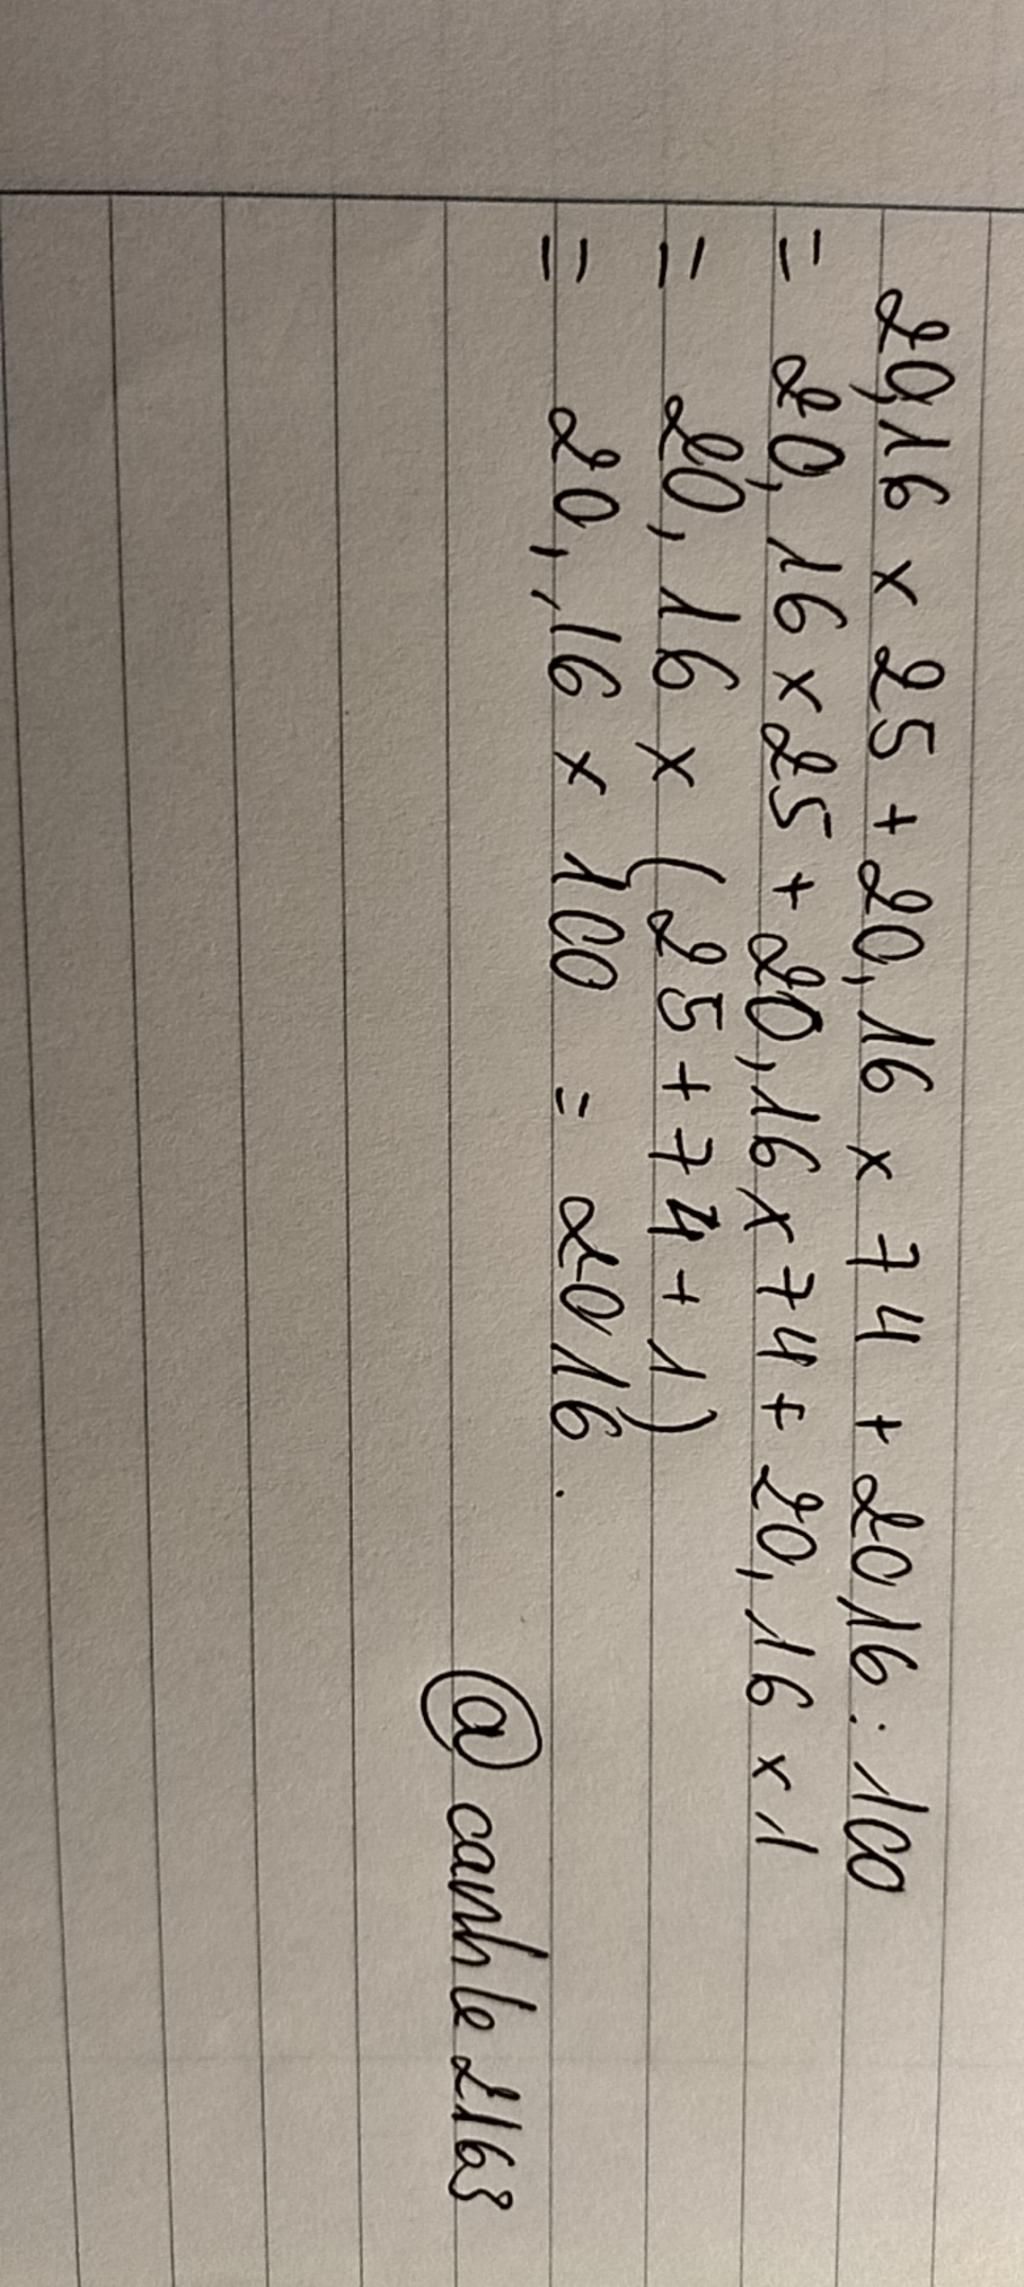 20,16 x 25 + 20,16 x 74 + 2016 : 100
= 20,16 x 25 + 20,16 x 74 + 20,16 x 1
= 20,16 x (25 + 74 + 1)
= 20,16 x 100 = 2016.
@ canhle2163